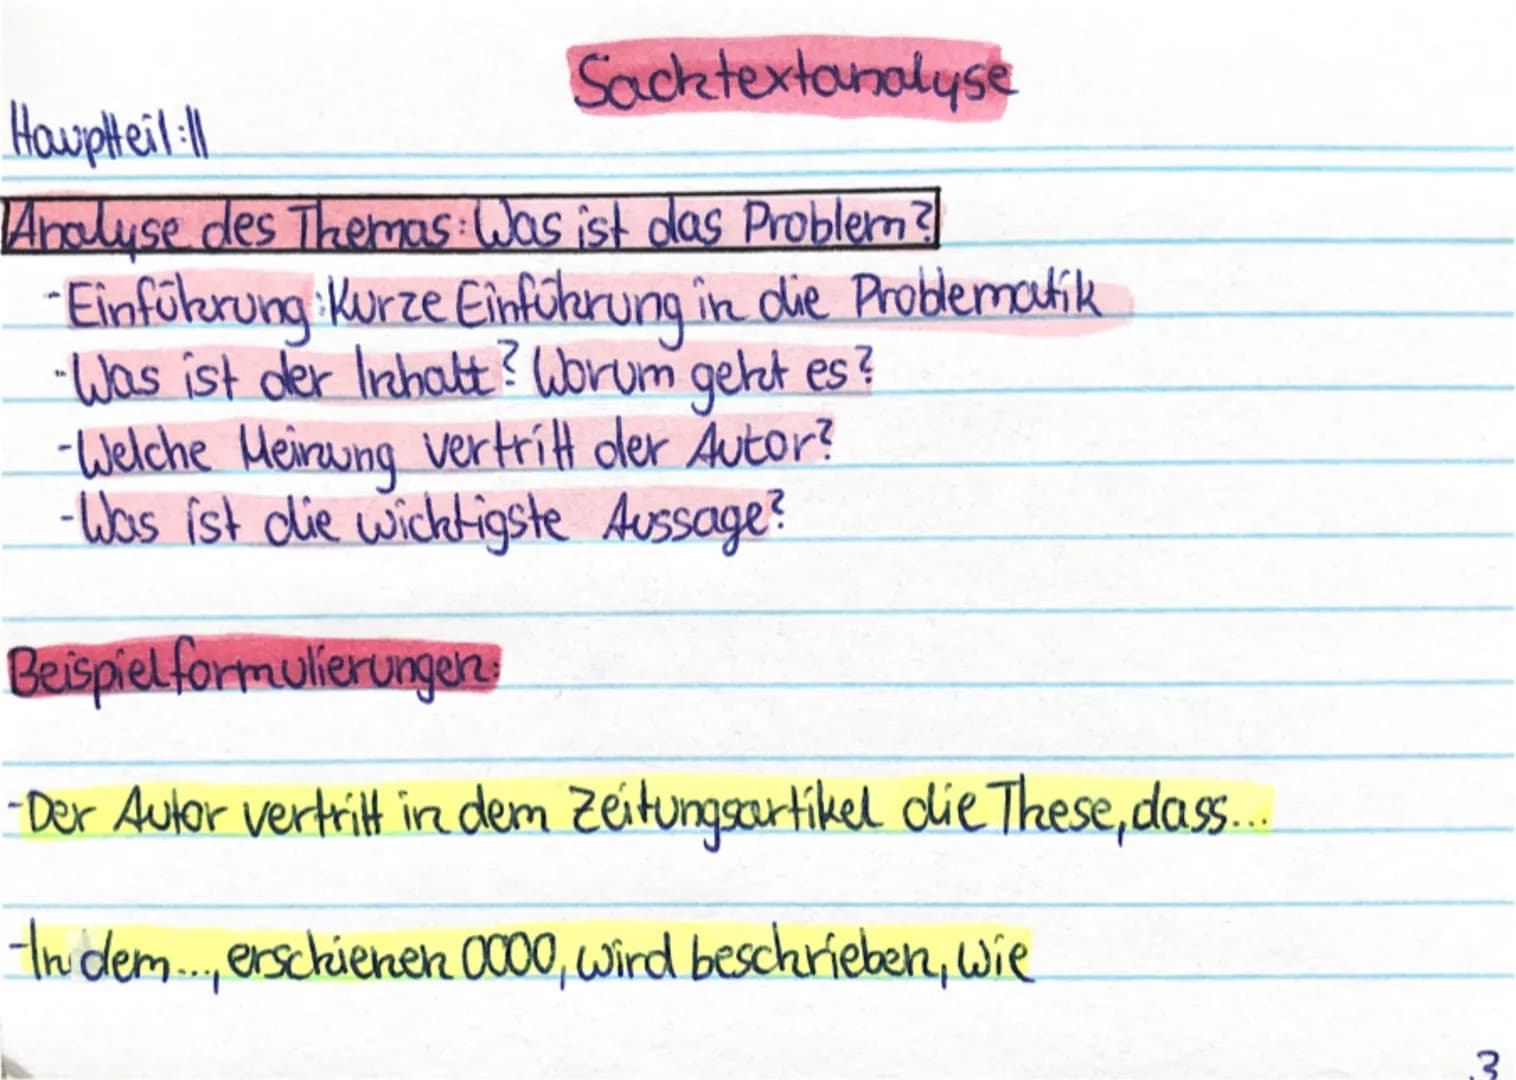 Sachtextanalyse
Hauptteil:||
Analyse des Themas: Was ist das Problem?
-Einführung: Kurze Einführung in die Problematik
-Was ist der Inhalt? Worum geht es?
-Welche Meinung vertritt der Autor?
-Was ist die wichtigste Aussage?
Beispielformulierungen:
-Der Autor vertritt in dem Zeitungsartikel die These, dass...
-In dem..., erschienen 0000, wird beschrieben, wie
3